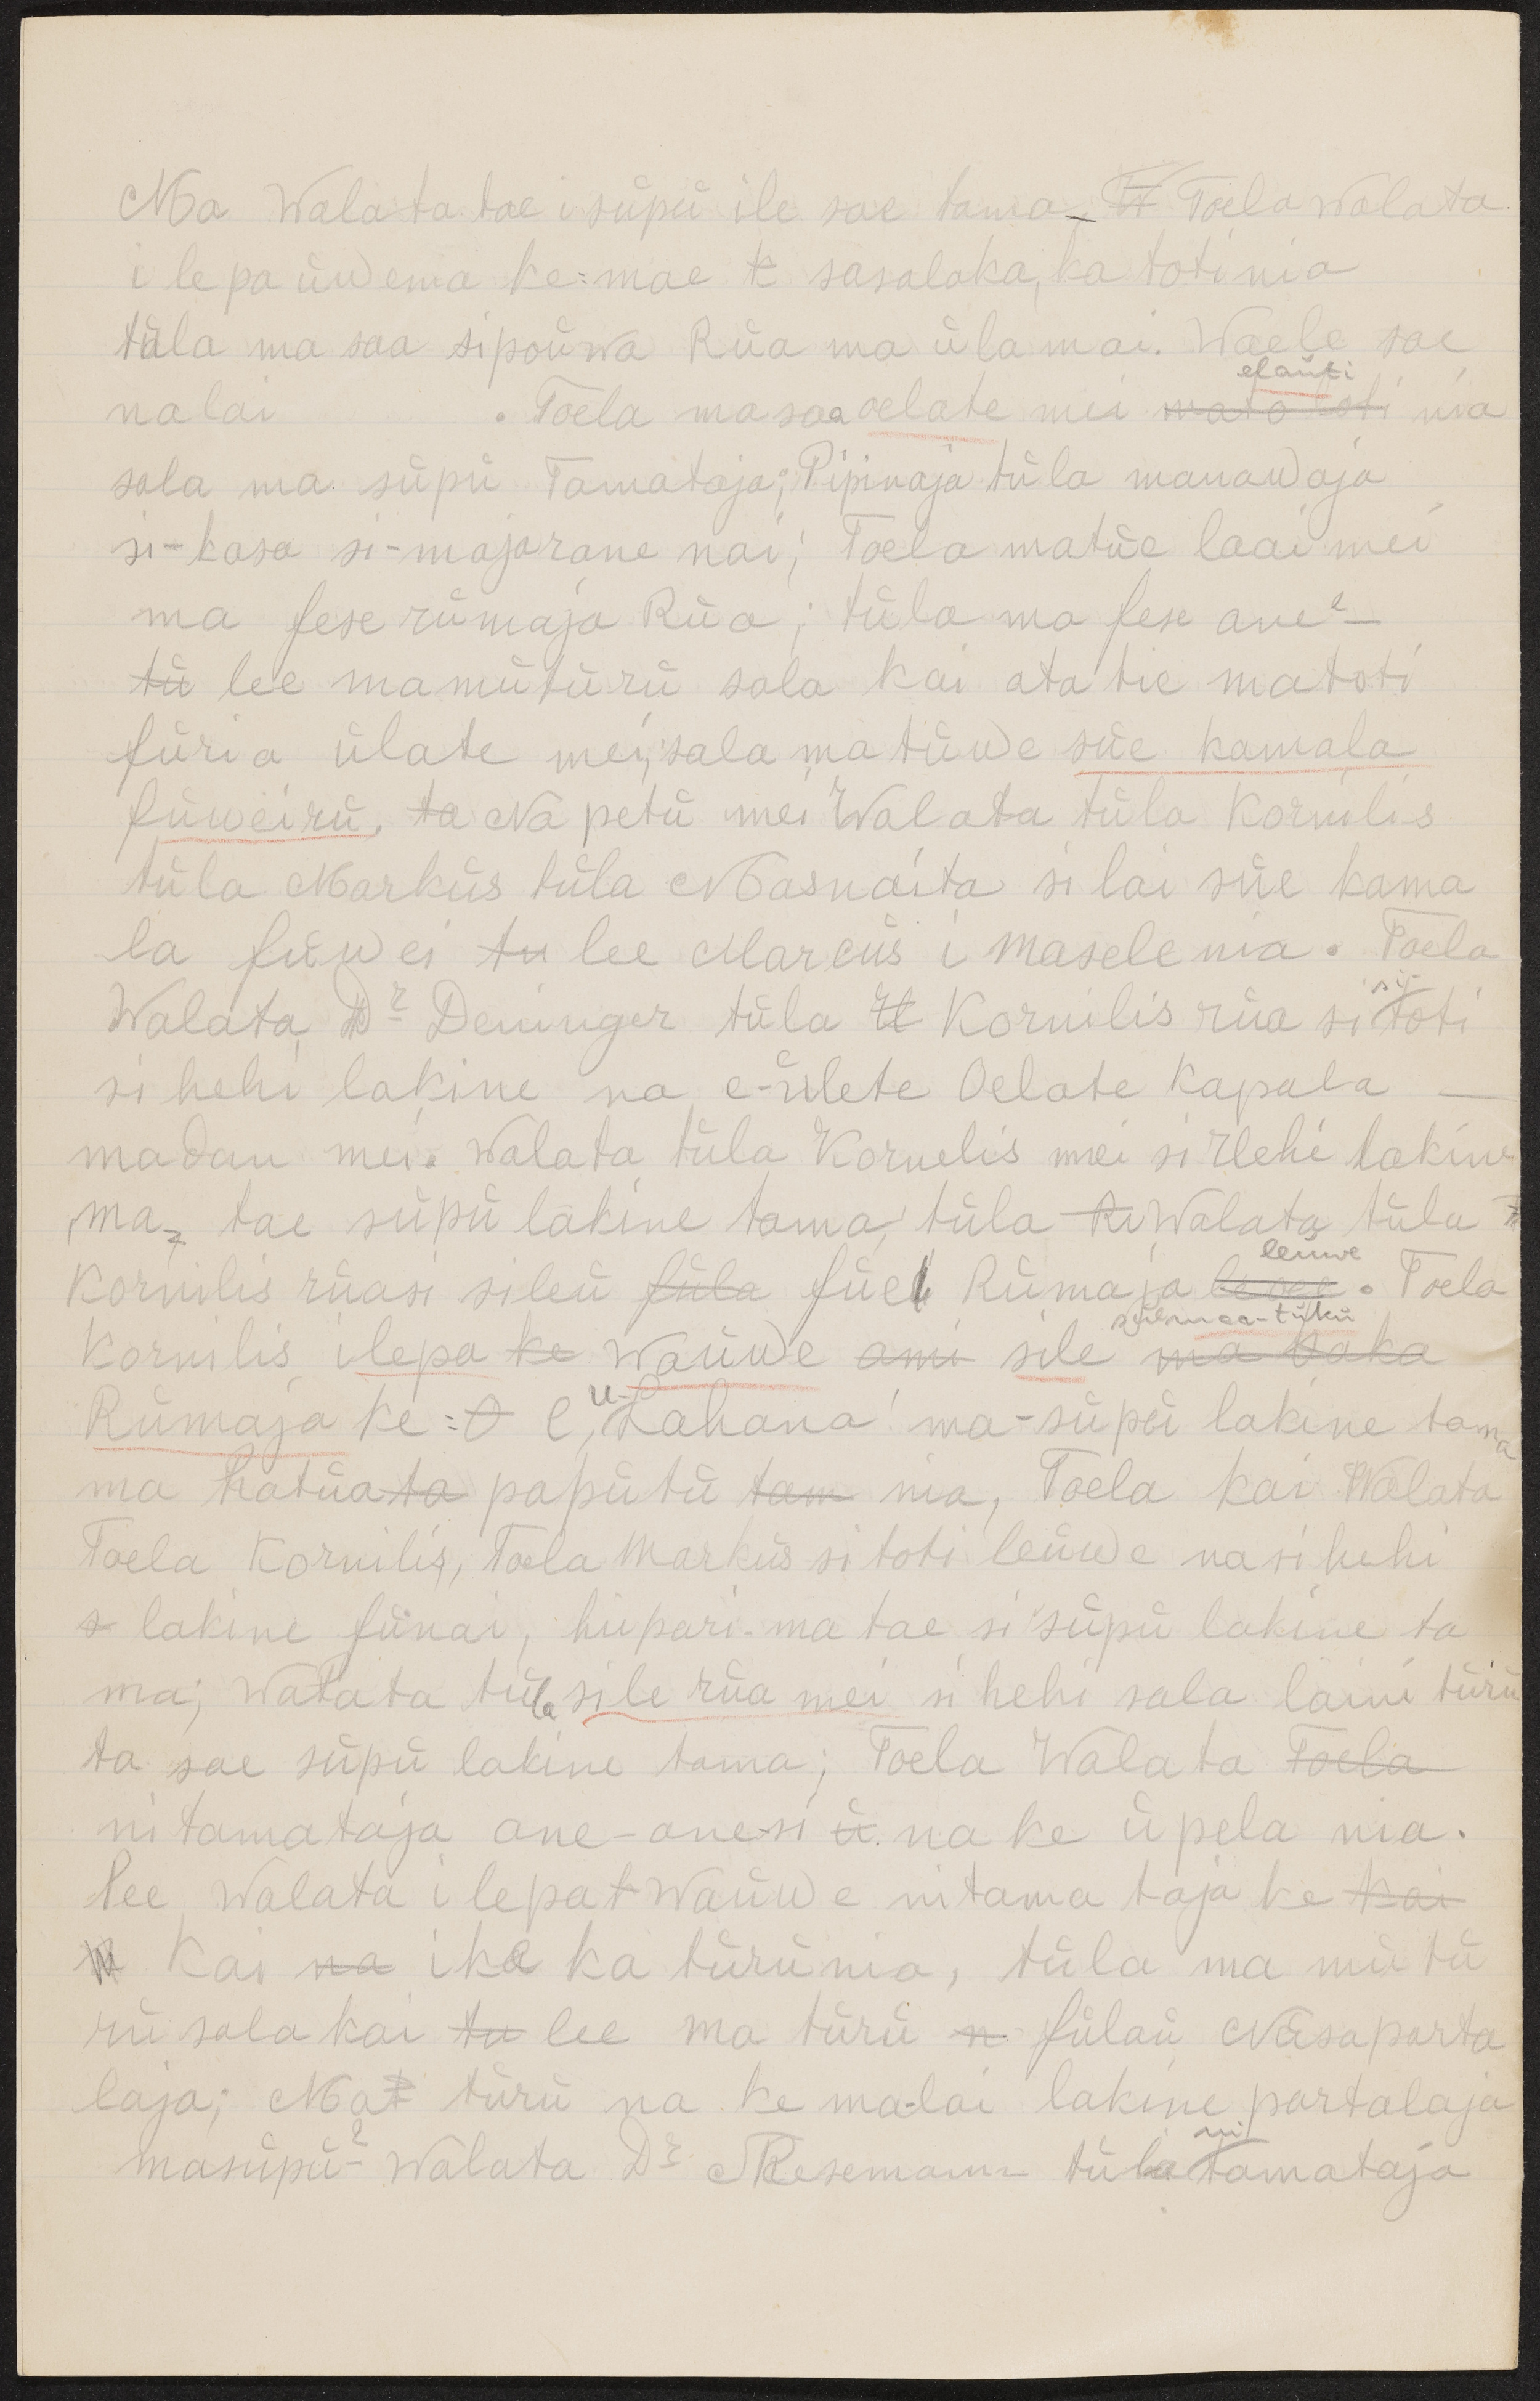 Ma Walata tae i süpü ile sae tama_ Toela Walata
i lepa üwema ke: mae sasalaka, ka toti nia
tüla ma saa sipoüwa Rüa ma üla mai. Waele sae
nalai . Toela masaa oelate mei elaüti nia
sala ma süpü Tamataja; Pipinaja tüla manawaja
si-kasa si-majarane nai; Toela matüe laai mei
ma fese rümaja Rüa; tüla ma fese ane²_
lee mamütürü sala kai ata tie matoti
füria ülate mei, sala ma tüwe süe kamala
füweirü, Na petü mei Walata tüla Kornilis
tüla Marküs tüla Masnaita si lai süe kama
la füwei lee Marcüs i maselenia. Toela
Walata Dr Deninger tüla Kornilis rüa si si-toti
si hehi lakine na e-ülete Oelate Kapala _
madan mei. Walata tüla Kornelis mei si hehi lakine
ma_ tae süpü lakine tama, tüla Walata tüla
Kornilis rüasi sileü füe Rümaja leüwe. Toela
Kornilis ilepa waüwe sile süemaa-tüku
Rümaja ke: e, u-Lahana ma-süpü lakine tama
ma hatüa papütü nia, Toela kai Walata
Toela Kornilis, Toela Marküs si toti leüwe na si hehi
lakine fünai, hüpari-ma tae si süpü lakine ta
ma; Walata tüla sile rüa mei si hehi sala laini türü
ta sae süpü lakine tama; Toela Walata
nitamataja ane-ane-si na ke üpela nia.
lee Walata i lepa waüwe nitama taja ke
Kai ika ka türünia, tüla ma mütü
rü sala kai lee ma türü fülaü Nüsaparta
laja; Ma türü na ke ma-lai lakine partalaja
masüpü-² Walata Dr Resemann tüla ni tamataja